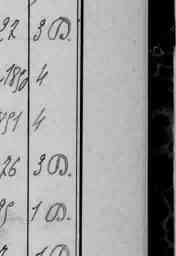 22 3 D.
1890 4
91 4
26 3 D.
95 1 D.
1 D.